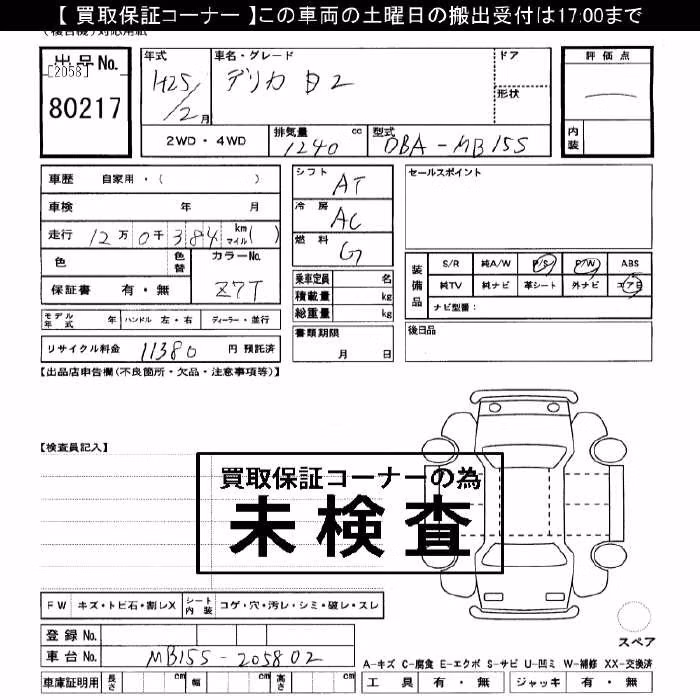 【 買取保証コーナー 】この車両の土曜日の搬出受付は17:00まで
出品No.
[2058]
80217
年式
H25/2月
車名・グレード
デリカ D2
ドア
形状
評価点
内装
2WD・4WD
排気量 1240 cc
型式 DBA-MB15S
車歴 自家用・( )
車検 年 月
走行 12万0千384 km マイル( )
色
色替
カラーNo.
Z7T
保証書 有・無
シフト AT
冷房 AC
燃料 G
乗車定員 名
積載量 kg
総重量 kg
書類期限
月 日
セールスポイント
装備品
S/R 純A/W P/S P/W ABS
純TV 純ナビ 革シート 外ナビ エアB
ナビ型番:
後日品
モデル年式 年 ハンドル 左・右 ディーラー・並行
リサイクル料金 11380 円 預託済
【出品店申告欄(不良箇所・欠品・注意事項等)】
【検査員記入】
買取保証コーナーの為
未検査
FW キズ・トビ石・割レX シート内装 コゲ・穴・汚レ・シミ・破レ・スレ
登録No.
車台No. MB15S-205802
車庫証明用 長さ cm 幅 cm 高さ cm
スペア
A-キズ C-腐食 E-エクボ S-サビ U-凹ミ W-補修 XX-交換済
工具 有・無 ジャッキ 有・無